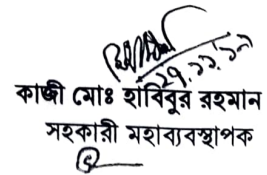 কাজী মোঃ হাবিবুর রহমান
সহকারী মহাব্যবস্থাপক